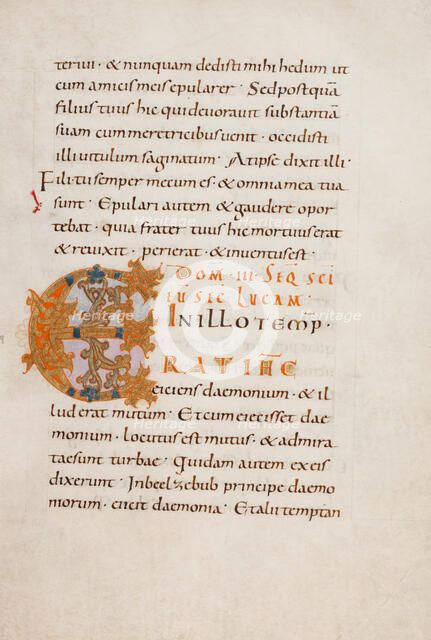 teriui · & nunquam dedisti mihi hedum ut
cum amicis meis epularer · Sed postquā
filius tuus hic qui deuorauit substantiā
suam cum meretricibus uenit · occidisti
illi uitulum saginatum · At ipse dixit illi ·
Fili · tu semper mecum es · & omnia mea tua
sunt · Epulari autem & gaudere opor
tebat · quia frater tuus hic mortuus erat
& reuixit · perierat & inuentus est ·
DOM · III · SEQ SCI
IN ILLO TEMP ·
ERAT IHC
eiciens daemonium · & il
lud erat mutum · Et cum eiecisset dae
monium · locutus est mutus · & admira
tae sunt turbae · Quidam autem ex eis
dixerunt · In beelzebub principe daemo
niorum · eicit daemonia · Et alii temptan
Heritage